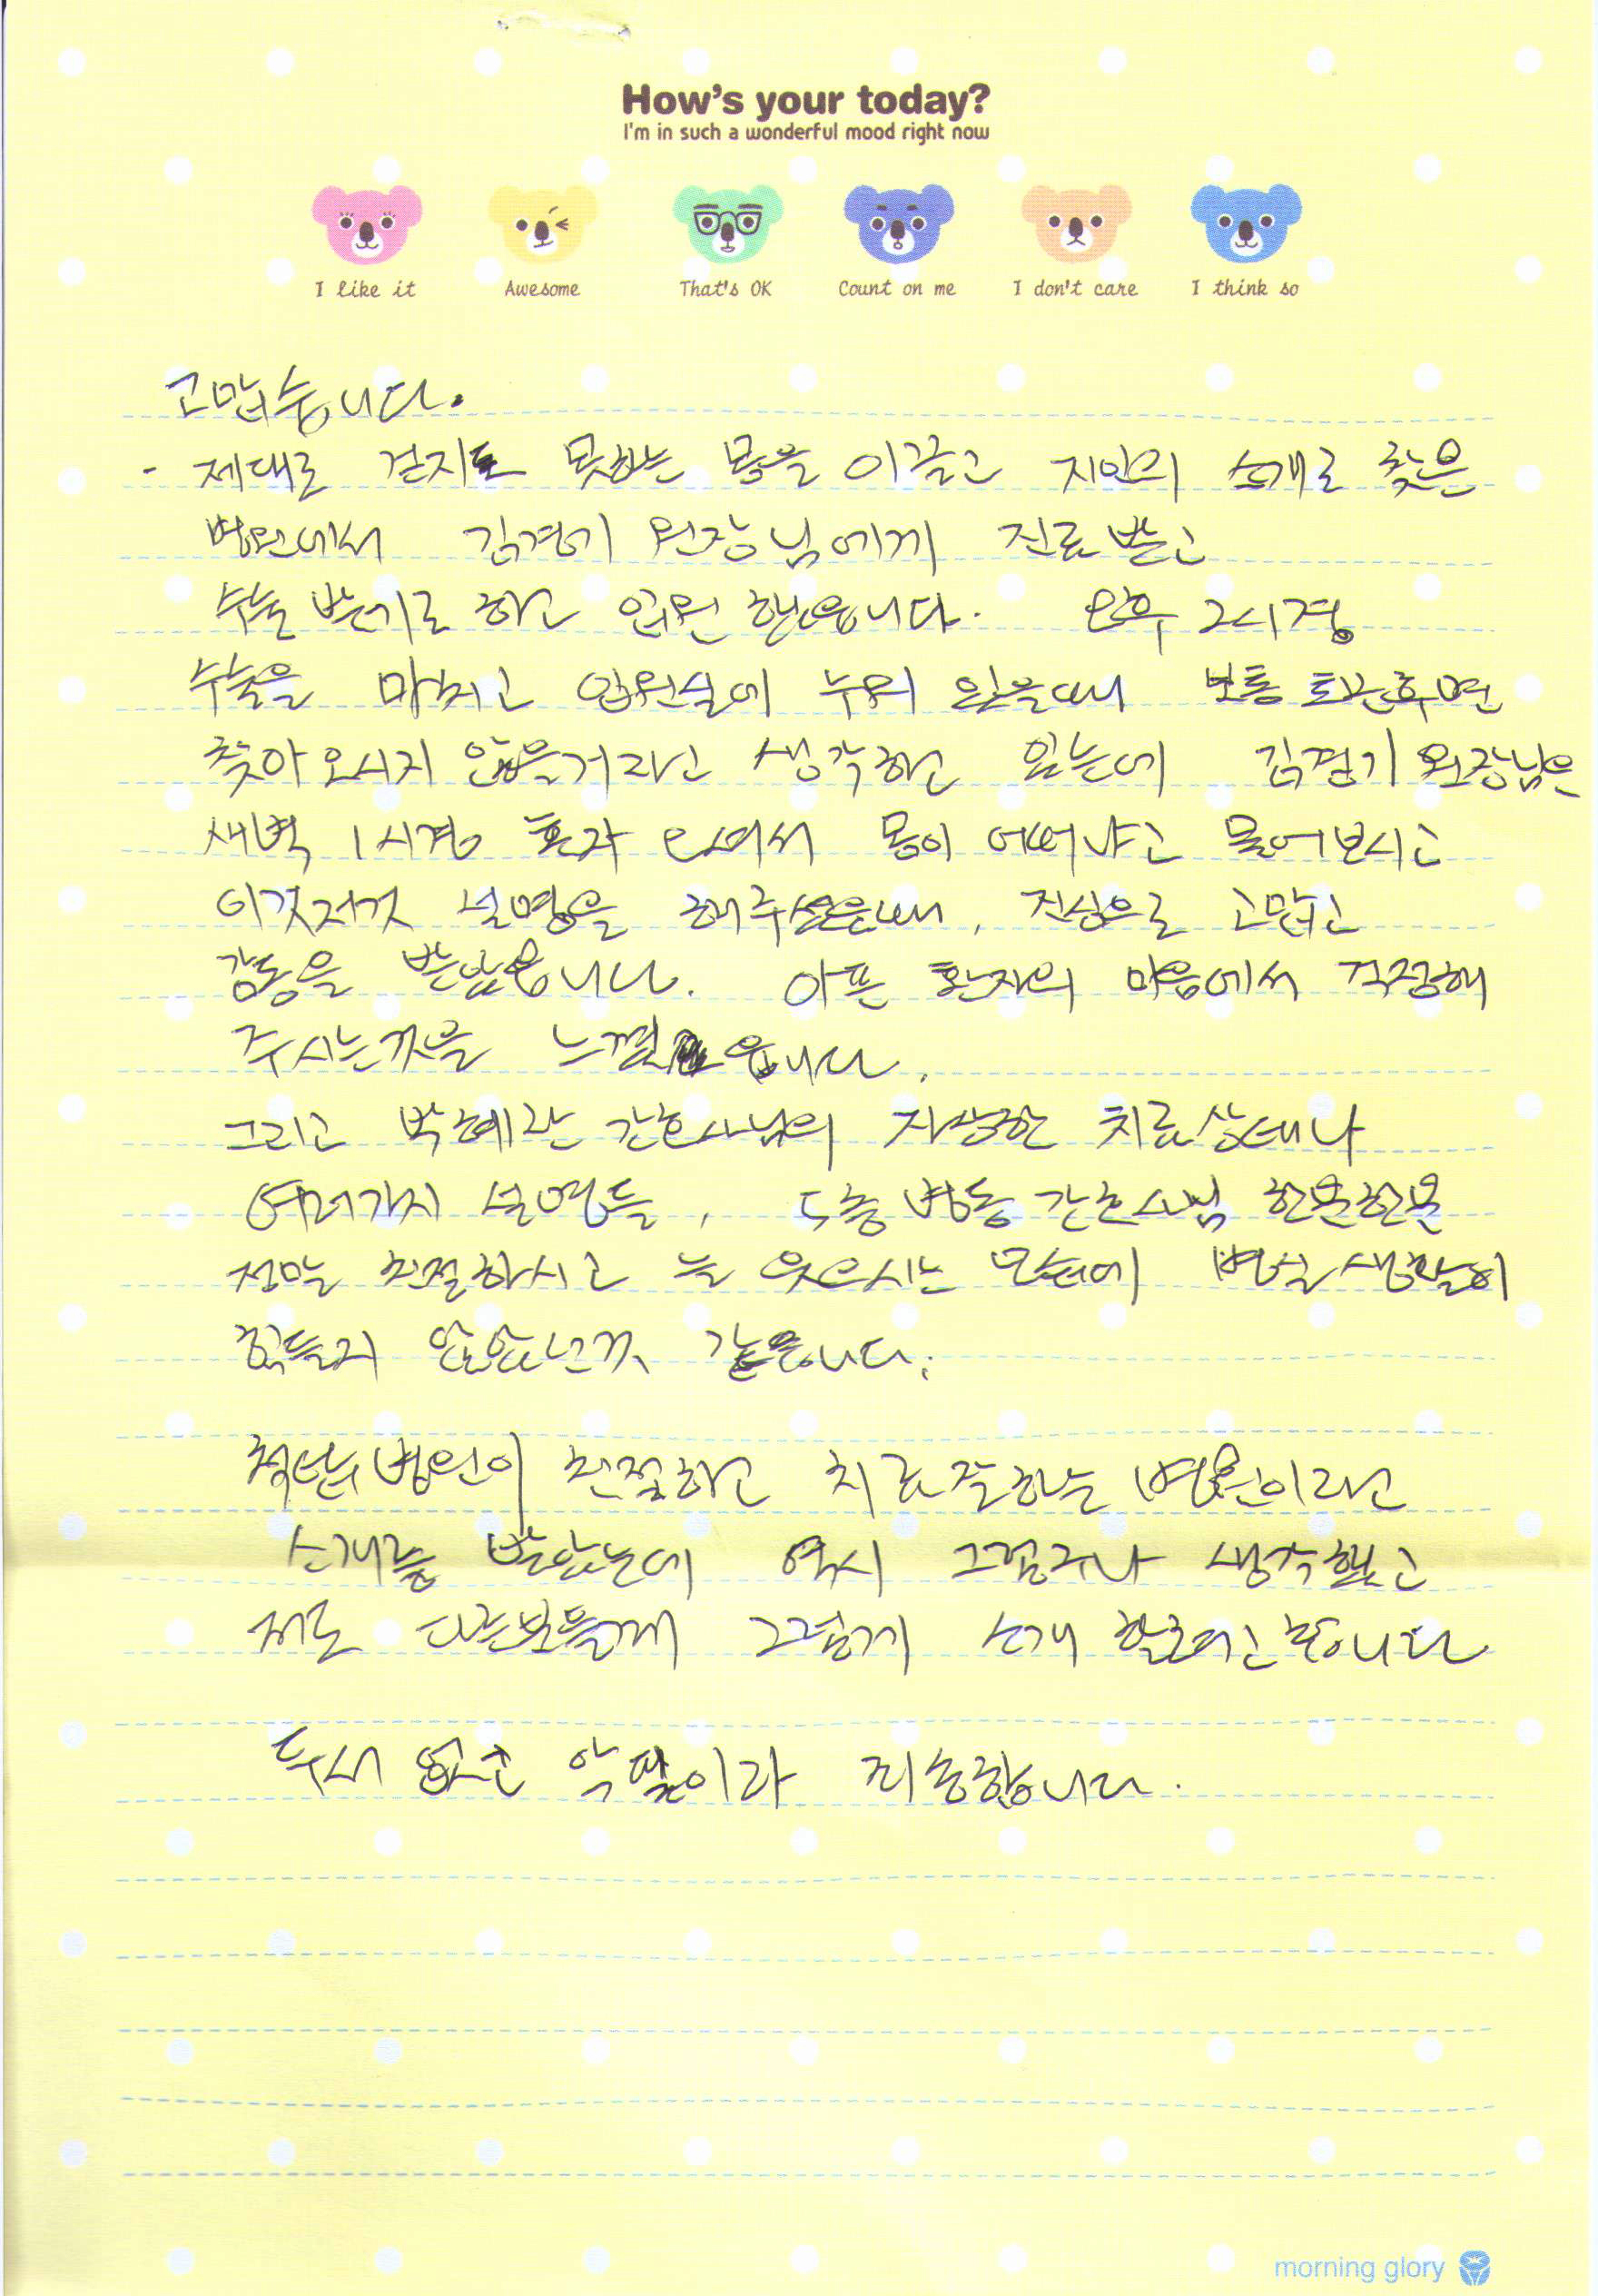 How's your today?
I'm in such a wonderful mood right now
I like it Awesome That's OK Count on me I don't care I think so
고맙습니다.
- 제대로 걷지도 못하는 몸을 이끌고 지인의 소개로 찾은
병원에서 김경기 원장님에게 진료받고
수술 받기로 하고 입원 했읍니다. 오후 2시경
수술을 마치고 입원실에 누워 있을때 보통 퇴근후면
찾아오시지 않을거라고 생각하고 있는데 김경기 원장님은
새벽 1시경 혼자 오셔서 몸이 어떠냐고 물어보시고
이것저것 설명을 해주셨을때, 진심으로 고맙고
감동을 받았읍니다. 아픈 환자의 마음에서 걱정해
주시는것을 느꼈읍니다.
그리고 박혜란 간호사님의 자상한 치료상태나
여러가지 설명들, 5층 병동 간호사님 한분한분
정말 친절하시고 늘 웃으시는 모습에 병실생활이
힘들지 않았던것 같읍니다.
척탑병원이 친절하고 치료잘하는 병원이라고
소개를 받았는데 역시 그렇구나 생각했고
저도 다른분들께 그렇게 소개 할려고합니다
두서 없는 악필이라 죄송합니다.
morning glory